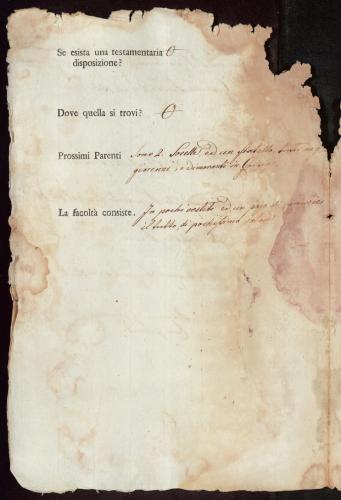 Se esista una testamentaria O
disposizione?
Dove quella si trovi? O
Prossimi Parenti Sono 2. Sorelle, ed un fratello, tutti
giorenni, e dimoranti in
La facoltà consiste. In pochi vestiti ed un
il tutto di pochissimo valore